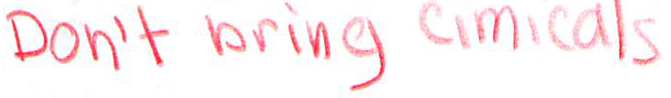 Don't bring cimicals